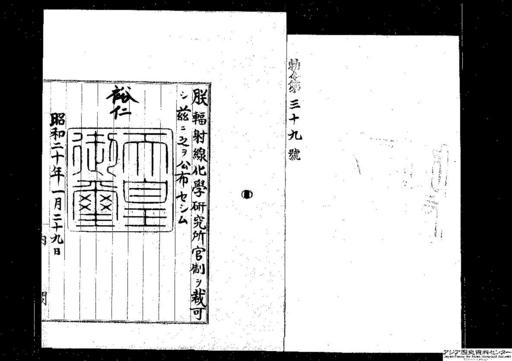 勅令第三十九號
朕輻射線化學研究所官制ヲ裁可
シ茲ニ之ヲ公布セシム
裕仁
天皇御璽
昭和二十年一月二十九日
内閣
アジア歴史資料センター